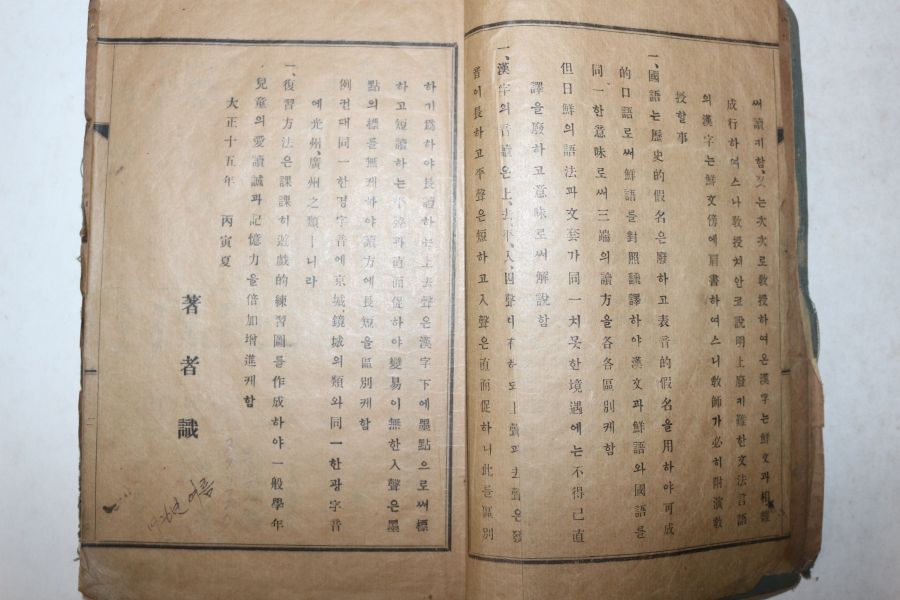 써讀케함、又는次次로敎授하여온漢字는鮮文과相離
成行하여스나敎授처안코說明上廢키難한文法言語
의漢字는鮮文傍에肩書하여스니敎師가必히附演敎
授할事
一、國語는歷史的假名은廢하고表音的假名을用하야可成
的口語로써鮮語를對照飜譯하야漢文과鮮語와國語를
同一한意味로써三端의讀方을各各區別케함
但日鮮의語法과文套가同一치못한境遇에는不得已直
譯을廢하고意味로써解說함
一、漢字의音讀은上、去、平、入、四聲이有하되上聲과去聲은發
音이長하고平聲은短하고入聲은直而促하니此를區別
하기爲하야長讀하는上去聲은漢字下에墨點으로써標
하고短讀하는平聲과直而促하야變易이無한入聲은墨
點의標를無케하야讀方에長短을區別케함
例컨대同一한경字音에京城、鏡城의類와同一한광字音
에光州、廣州之類ㅣ니라
一、復習方法은課課히遊戲的練習圖를作成하야一般學年
兒童의愛讀誠과記憶力을倍加增進케함
大正十五年 丙寅夏
著者識
1926년 여름